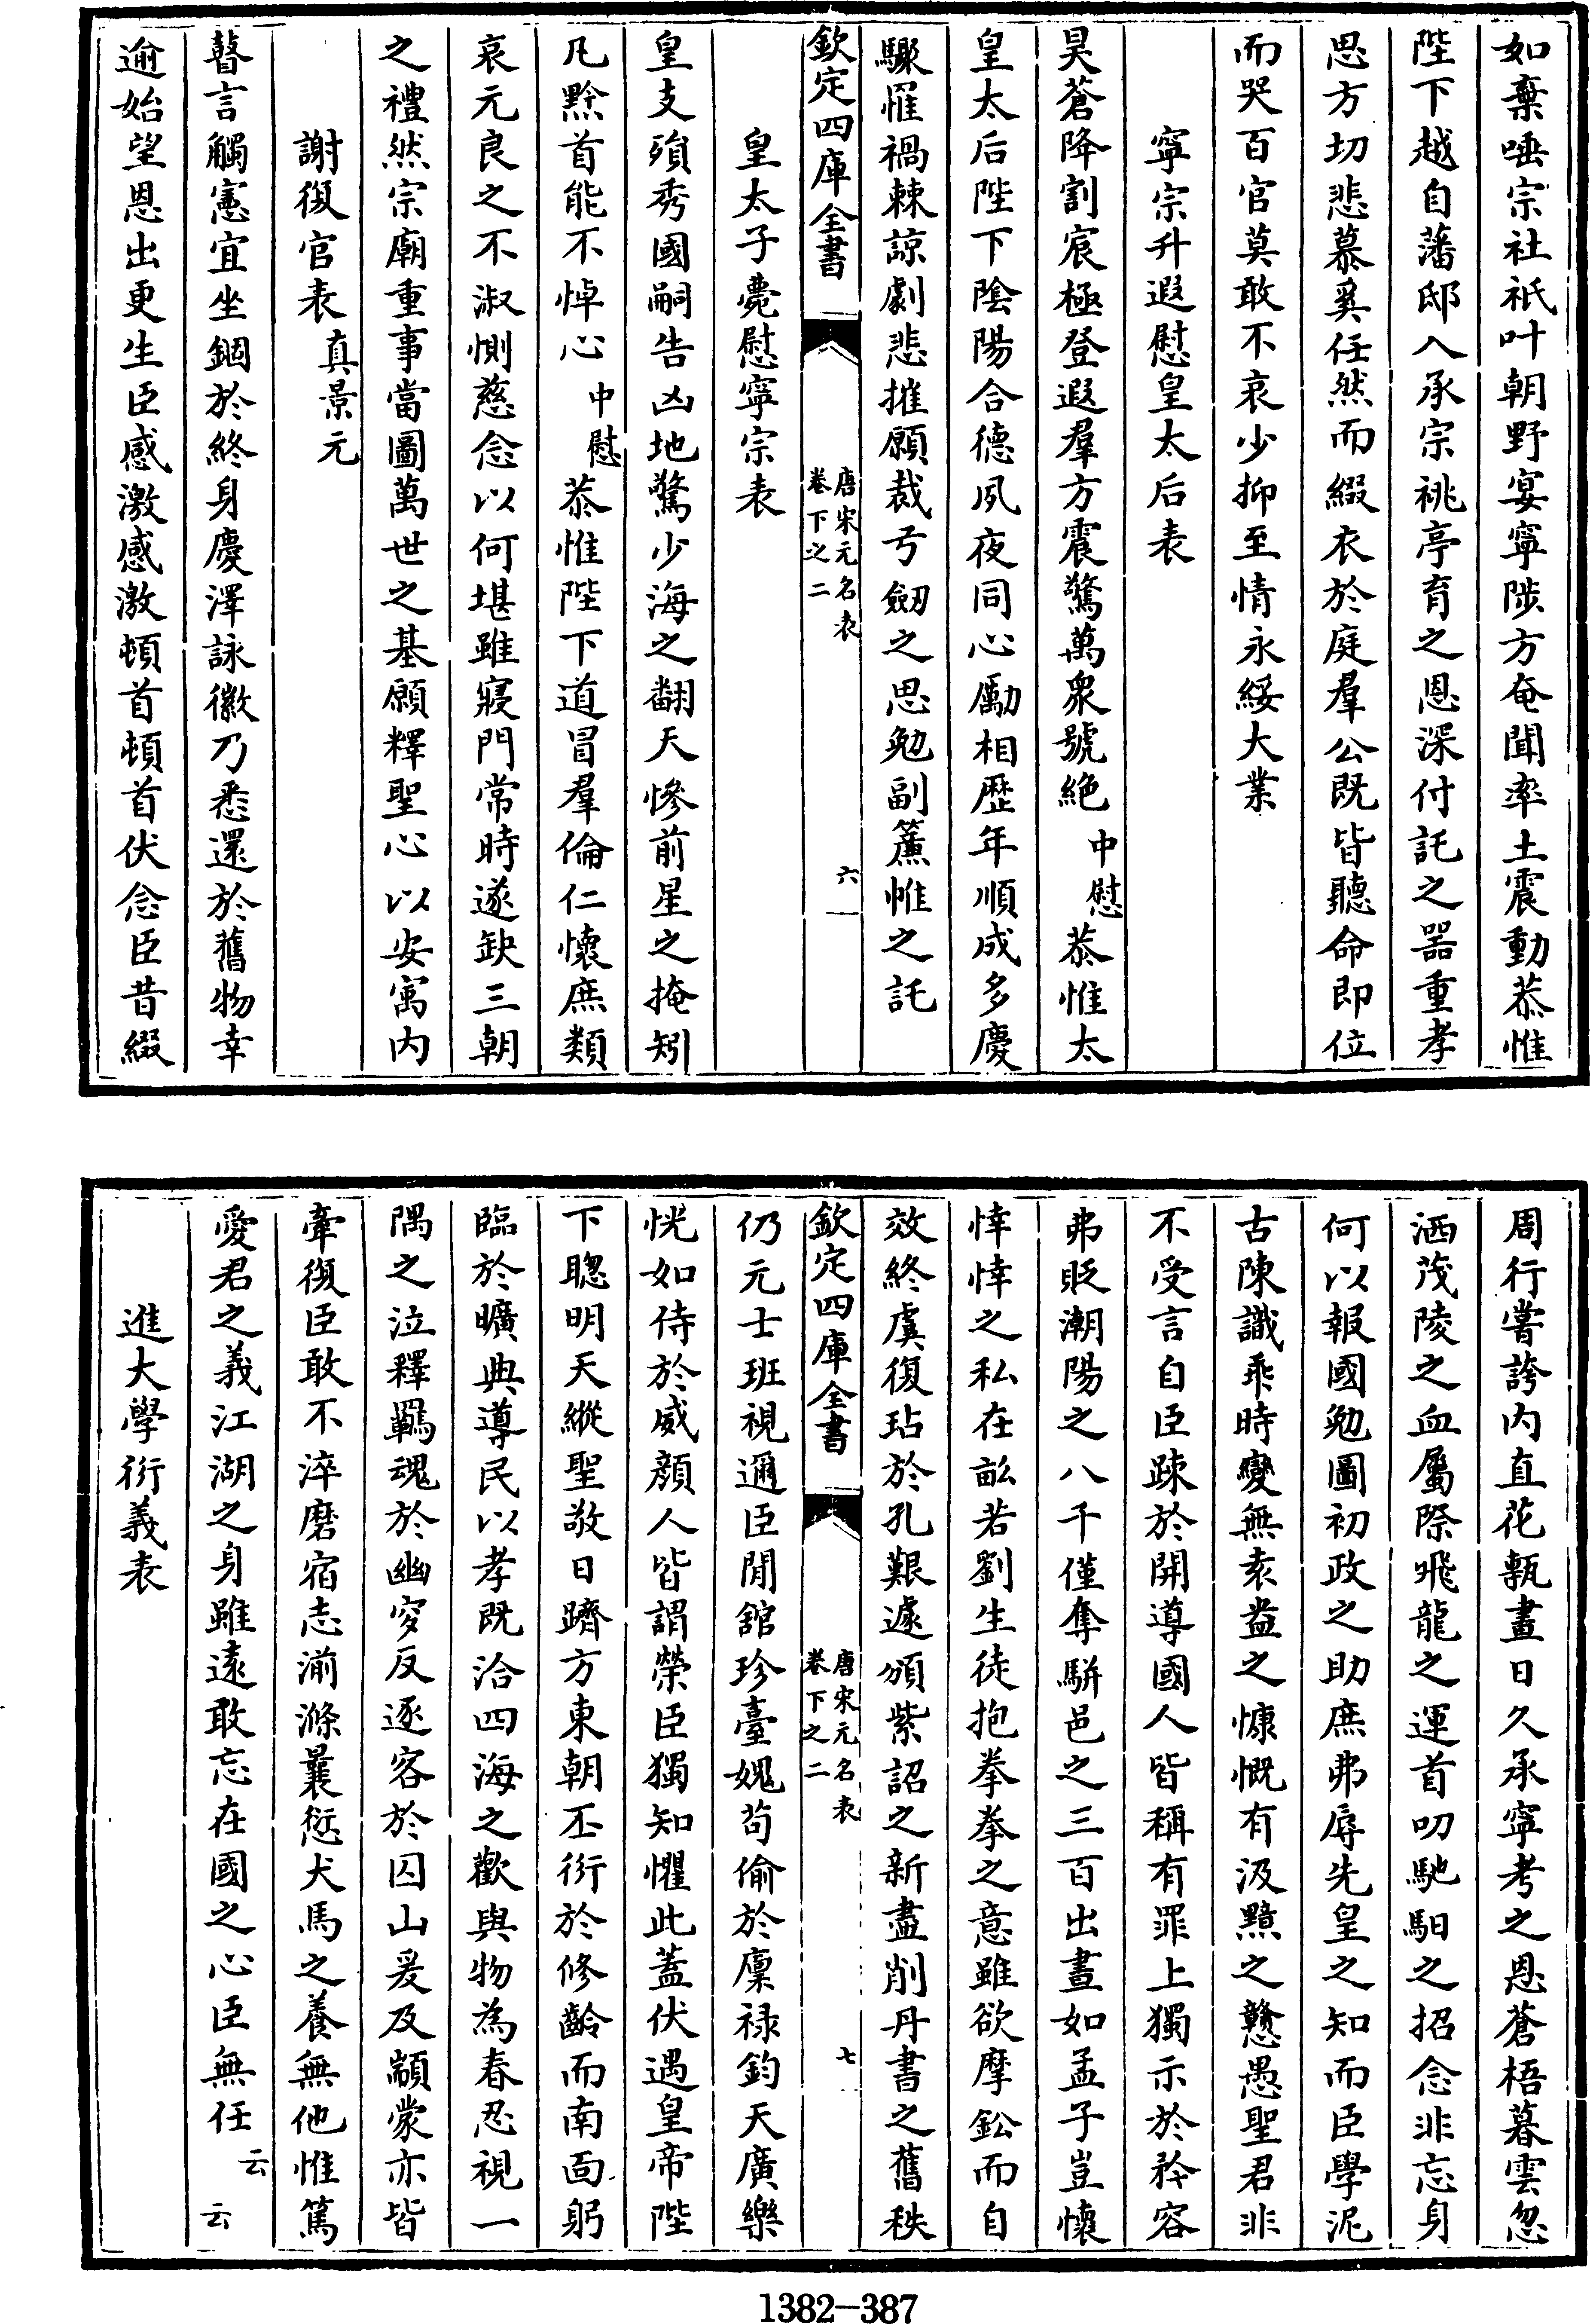 如棄唾宗社祇叶朝野宴寧陟方奄聞率土震動恭惟
陛下越自藩邸入承宗祧亭育之恩深付託之器重孝
思方切悲慕奚任然而綴衣於庭羣公既皆聽命即位
而哭百官莫敢不哀少抑至情永綏大業
寧宗升遐慰皇太后表
昊蒼降割宸極登遐羣方震驚萬衆號絶中慰恭惟太
皇太后陛下陰陽合德夙夜同心勵相歴年順成多慶
驟罹禍棘諒劇悲摧願裁弓劒之思勉副簾帷之託
欽定四庫全書
唐宋元名表
卷下之二
六
皇太子薨慰寧宗表
皇支殞秀國嗣告凶地驚少海之翻天慘前星之掩矧
凡黔首能不悼心中慰恭惟陛下道冒羣倫仁懷庶類
哀元良之不淑惻慈念以何堪雖寢門常時遂缺三朝
之禮然宗廟重事當圖萬世之基願釋聖心以安寓内
謝復官表真景元
瞽言觸憲宜坐錮於終身慶澤詠徽乃悉還於舊物幸
逾始望恩出更生臣感激感激頓首頓首伏念臣昔綴
周行嘗誇内直花甎晝日久承寧考之恩蒼梧暮雲忽
洒茂陵之血屬際飛龍之運首叨馳馹之招念非忘身
何以報國勉圖初政之助庶弗辱先皇之知而臣學泥
古陳識乖時變無袁盎之慷慨有汲黯之戇愚聖君非
不受言自臣疎於開導國人皆稱有罪上獨示於矜容
弗貶潮陽之八千僅奪駢邑之三百出晝如孟子豈懷
悻悻之私在畝若劉生徒抱拳拳之意雖欲摩鈆而自
效終虞復玷於孔艱遽頒紫詔之新盡削丹書之舊秩
欽定四庫全書
唐宋元名表
卷下之二
七
仍元士班視邇臣閒舘珍臺媿苟偷於廩禄鈞天廣樂
恍如侍於威顔人皆謂榮臣獨知懼此蓋伏遇皇帝陛
下聰明天縱聖敬日躋方東朝丕衍於修齡而南面躬
臨於曠典導民以孝既洽四海之歡與物為春忍視一
隅之泣釋羈魂於幽穸反逐客於囚山爰及顓蒙亦皆
牽復臣敢不淬磨宿志湔滌曩愆犬馬之養無他惟篤
愛君之義江湖之身雖遠敢忘在國之心臣無任云云
進大學衍義表
1382-387